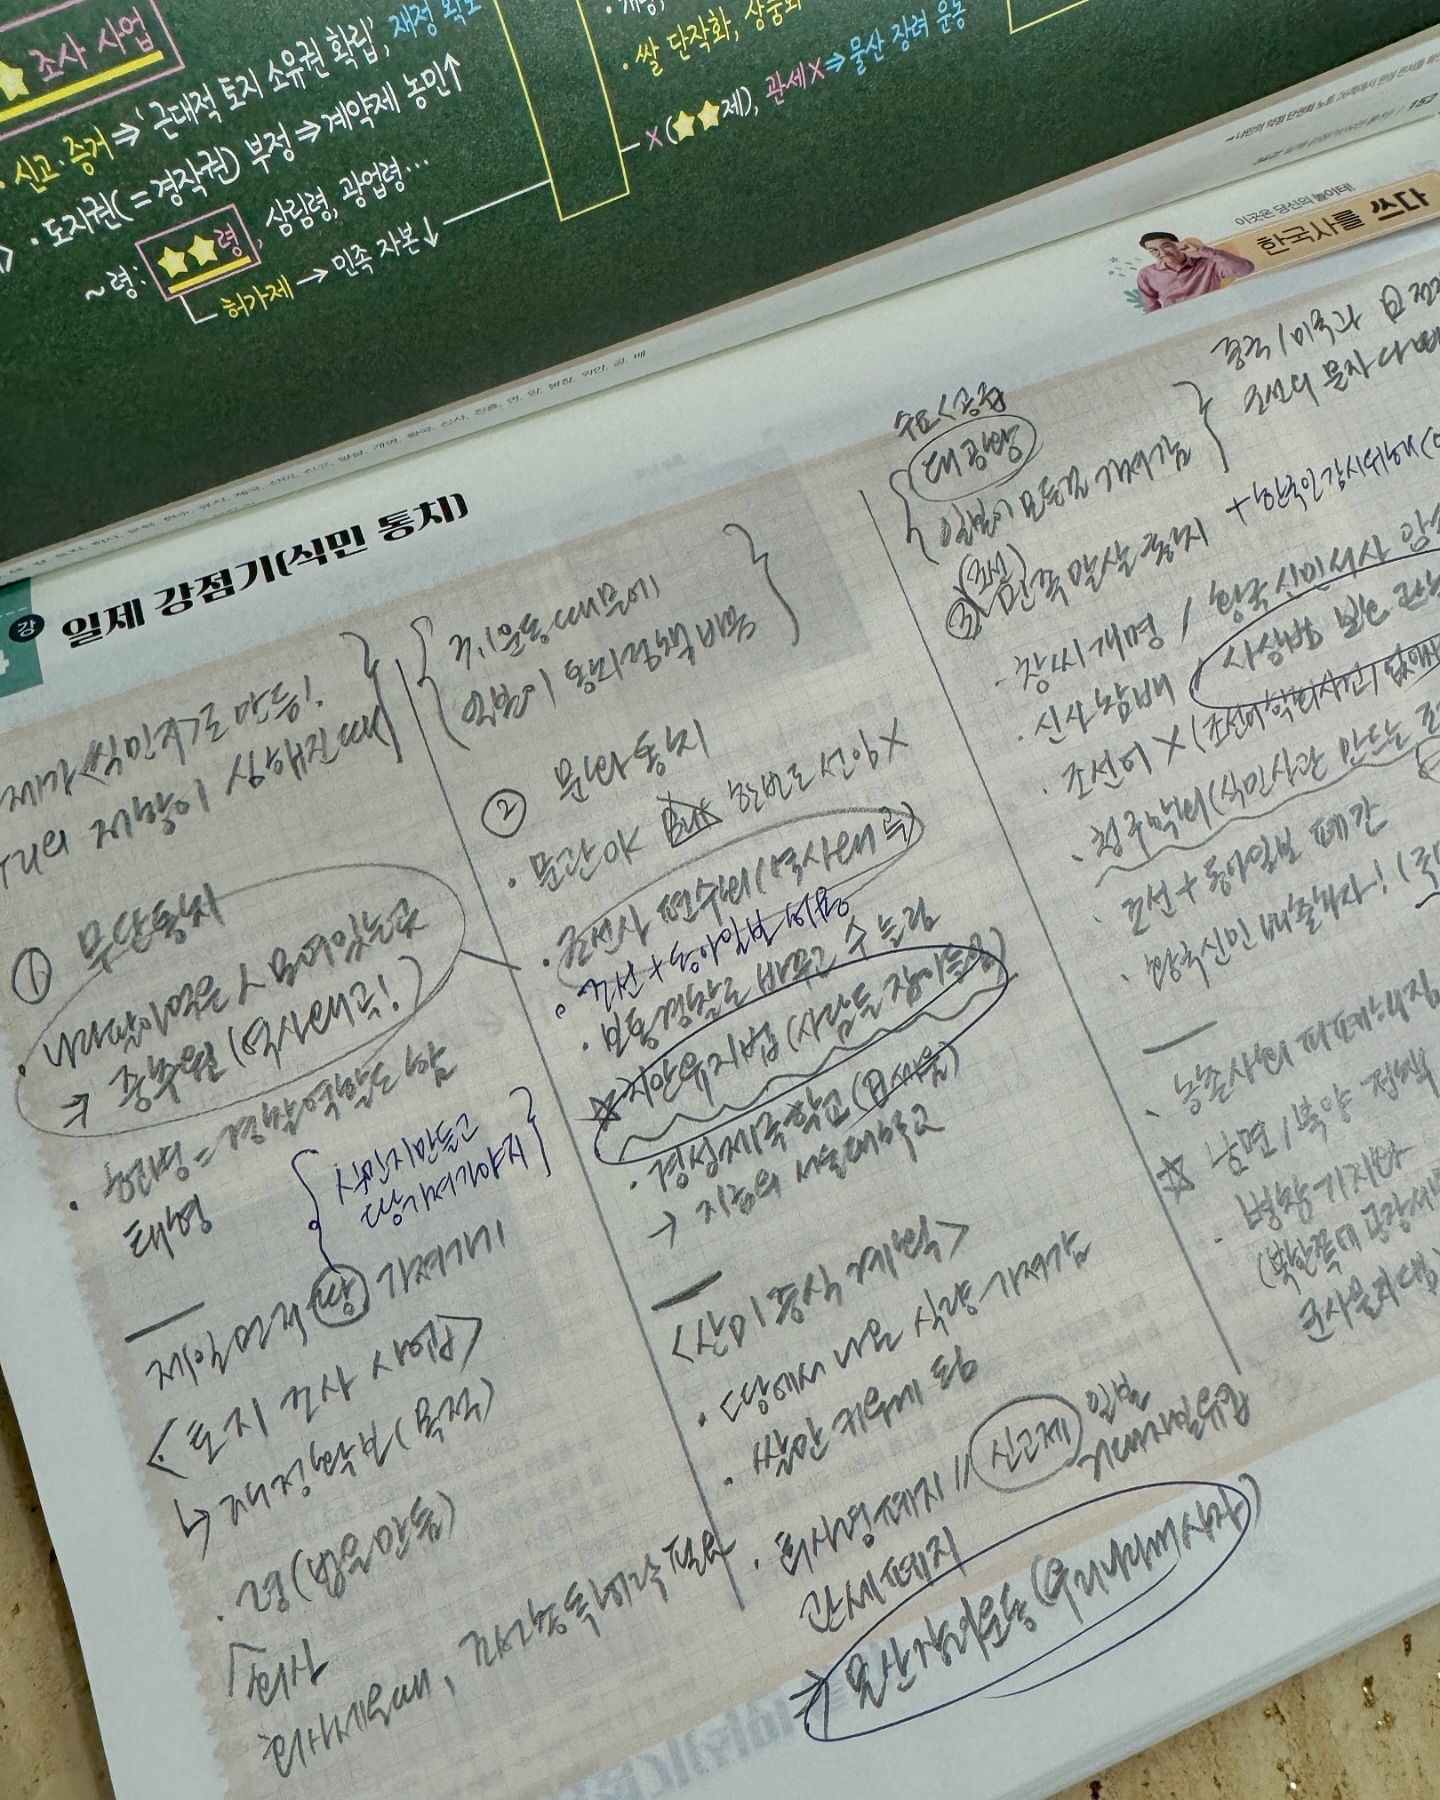 조사 사업
신고·증거⇒'근대적 토지 소유권 확립', 재정 확보
· 도지권(=경작권) 부정⇒계약제 농민↑
~령: ★★령, 삼림령, 광업령…
허가제 → 민족 자본↓
· 쌀 단작화, 상품화
X(★★제), 관세X⇒물산 장려 운동
152
이곳은 당신의 놀이터!
한국사를 쓰다
강
일제 강점기(식민 통치)
식민지로 만듦!
우리의 저항이 심해진때
① 무단통치
· 나라팔아먹은 사람 모여있는곳
→ 중추원 (역사왜곡!)
· 헌병=경찰역할도 함
태형
식민지만들고
땅가져가야지
제일먼저 땅 가져가기
<토지 조사 사업>
↳ 재정확보(목적)
· 령(법을만듦)
회사
회사세울때, 조선총독허락 필요
3.1운동때문에
일본이 통치정책 바꿈
② 문화통치
· 문관OK but 한번도 선임X
· 조선사 편수회(역사왜곡)
· 조선+동아일보 허용
· 보통경찰로 바꾸고 수 늘림
☆치안유지법(사람들 잡아들임)
· 경성제국학교(日세움)
→ 지금의 서울대학교
<산미 증식 계획>
· 땅에서 나온 식량 가져감
· 쌀만 키우게 됨
· 회사령폐지 // 신고제
일본
기업자본유입
관세폐지
→ 물산장려운동(우리나라꺼사자)
수요<공급
대공황
일본이 모든걸 가져감
(조선)
③ 민족말살통치
· 창씨개명 / 황국신민서사 암송
· 신사참배
· 조선어 X (조선어학회사건)
· 청구학회(식민사관 만드는
· 조선+동아일보 폐간
· 황국신민 배출하자!
· 농촌사회 피폐해짐
☆ 남면/북양 정책
· 병참기지화
(북한쪽에 공장세
군사물자댐